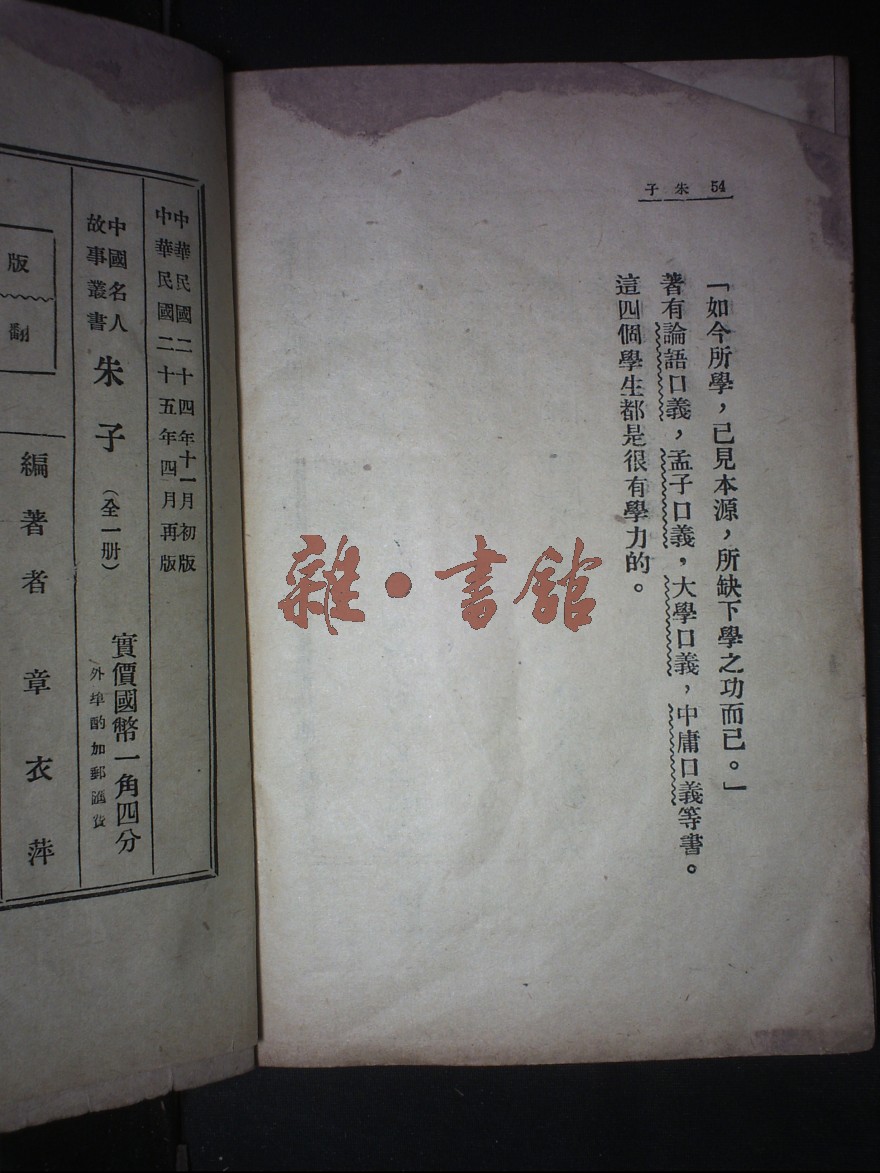 朱子 54
「如今所學，已見本源，所缺下學之功而已。」
著有論語口義，孟子口義，大學口義，中庸口義等書。
這四個學生都是很有學力的。
雜·書館
中華民國二十四年十一月初版
中華民國二十五年四月再版
中國名人
故事叢書
朱子
（全一册）
實價國幣一角四分
外埠酌加郵匯費
版
翻
編著者 章衣萍